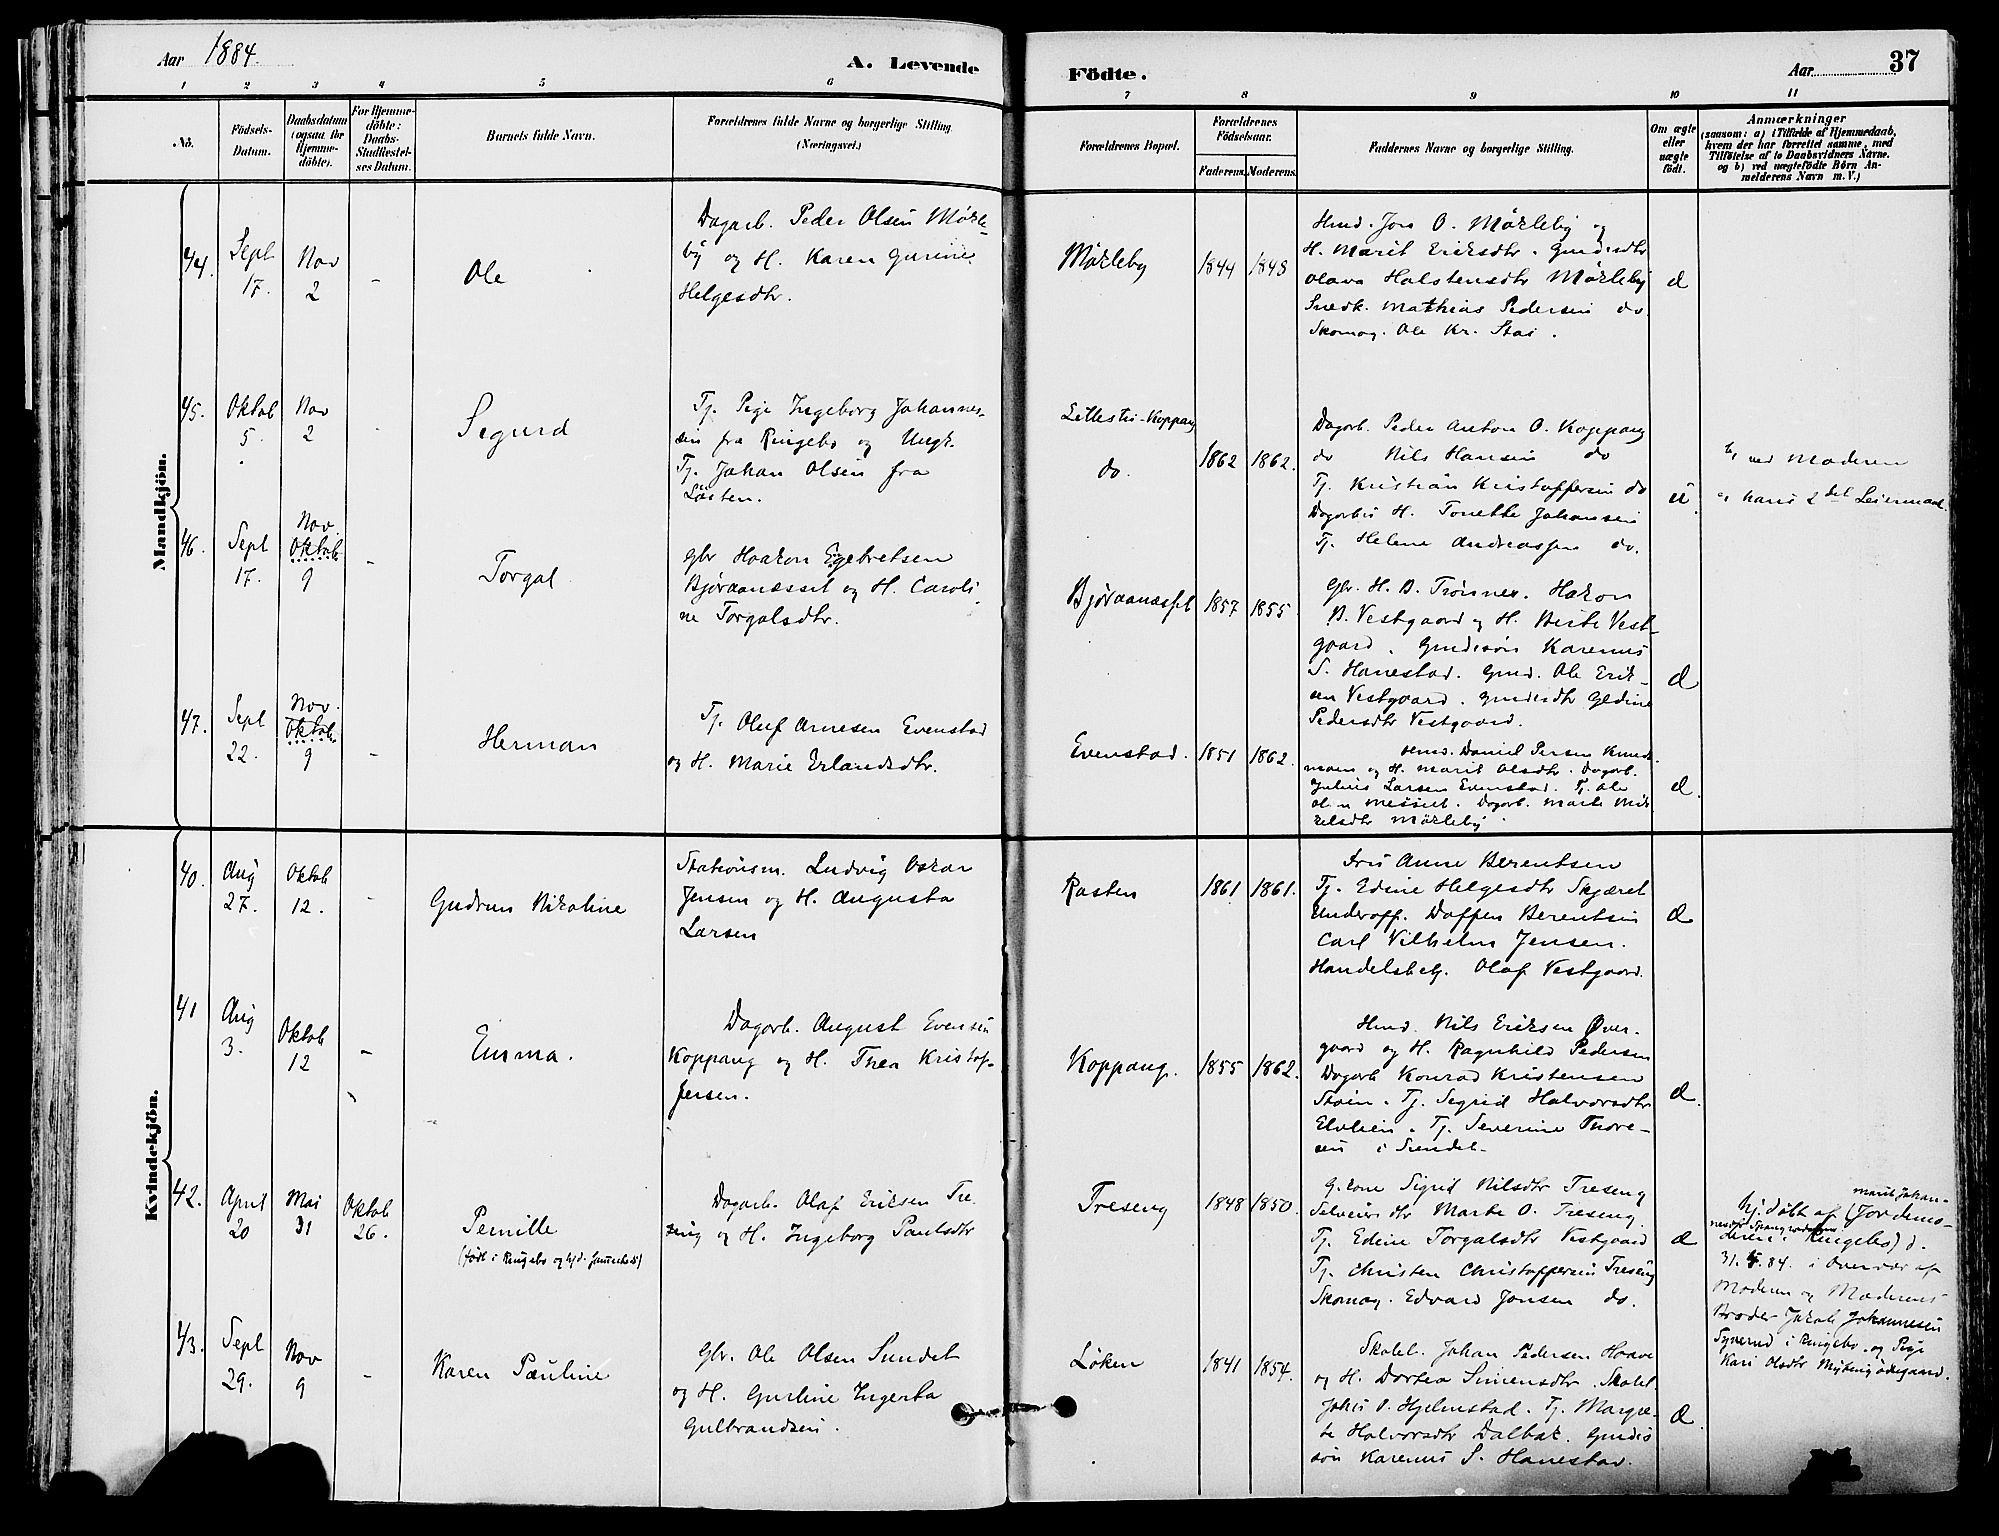 Aar 1884.
A. Levende
Födte.
Aar
37
1 2 3 4 5 6 7 8 9 10 11
No.
Födsels-
Datum.
Daabsdatum
(ogsaa for
Hjemme-
döbte).
For Hjemme-
döbte:
Daabs-
Stadfæstel-
ses Datum.
Barnets fulde Navn.
Forældrenes fulde Navne og borgerlige Stilling
(Næringsvei.)
Forældrenes Bopæl.
Forældrenes
Födselsaar.
Faderens. Moderens.
Faddernes Navne og borgerlige Stilling.
Om ægte
eller
uægte
födt.
Anmærkninger
(saasom: a) i Tilfælde af Hjemmedaab,
hvem der har forrettet samme, med
Tilföielse af to Daabsvidners Navne.
og b) ved uægtefödte Børn An-
melderens Navn m. V.)
Mandkjön.
44.
Sept
17.
Nov
2
-
Ole
Dagarb. Peder Olsen Mørkle-
by og H. Karen Gurine
Helgesdtr.
Mørkleby
1844 1848
Hmd. Jon O. Mørkleby og
H. Marit Eriksdtr. Gmdsdtr
Olava Halstensdtr Mørkleby
Snedk. Mathias Pedersen do
Skomag. Ole Kr. Stai.
45.
Oktob
5.
Nov
2
Sigurd
Tj. Pige Ingeborg Johannes-
sen fra Ringebo og Ungk.
Tj. Johan Olsen fra
Löiten.
Koppang
do.
1862 1862.
Dagarb. Peder Anton O. Koppang
do Nils Hansen do
Tj. Kristian Kristoffersen do
H. Tonette Johansen
Tj. Helene Andreassen do.
u.
ved Moderen
hans 2det Leiermaal.
46.
Sept
17.
Nov.
Oktob
9
-
Torgal
Gbr Haakon Egebretsen
Bjøraanæsset og H. Caroli-
ne Torgalsdtr.
Bjøraanæsset
1857 1855
Gbr. H. B. Trønnes. Hakon
B. Vestgaard og H. Berte Vest-
gaard. Gmdssön Karenus
S. Hanestad. Gmd. Ole Erik-
sen Vestgaard. Gmdsdtr Gedine
Pedersdtr Vestgaard.
47.
Sept
22.
Nov.
Oktob.
9
-
Herman
Tj. Oluf Arnesen Evenstad
og H. Marie Erlandsdtr.
Evenstad.
1851 1862.
Hmd. Daniel Persen
og H. Marit Olsdtr. Dagarb.
Julius Larsen Evenstad. Tj. Ole
Messelt. Dagarb. Marte Mik-
kelsdtr Mørkleby.
Kvindekjön.
40.
Aug
27.
Oktob
12.
-
Gudrun Nikoline
Stationsm. Ludvig Oskar
Jensen og H. Augusta
Larsen
Rasten
1861 1861.
Fru Anne Berentsen
Tj. Edine Helgesdtr Skjæret
Underoff. Berentsen
Carl Vilhelm Jensen.
Handelsbetj. Olaf Vestgaard.
41
Aug
3.
Oktob
12
-
Emma.
Dagarb. August Evensen
Koppang og H. Thea Kristof-
fersen.
Koppang.
1855 1862.
Hmd. Nils Eriksen Øver-
gaard og H. Ragnhild Pedersen
Dagarb Konrad Kristensen
Stain. Tj. Sigrid Halvorsdtr
Tj. Severine Thore-
sen i Sundet.
42.
April
20
Mai
31
Oktob
26.
Pernille
(født i Ringebo og hjd. sammesteds)
Dagarb. Olaf Eriksen Tre-
seng og H. Ingeborg Paulsdtr
Treseng
1848 1850.
G.kone Sigrid Nilsdtr Treseng
Marte O. Treseng.
Tj. Edine Torgalsdtr Vestgaard
Tj. Christen Christoffersen Treseng
Skomag. Edvard Jonsen do.
Hj. döbt af (Jordemo-
Marit Johan-
deren i Ringebo) d.
31.5.84. i Overvær af
Moderen og Moderens
Broder Jakob Johannesen
i Ringebo. og Pige
Kari Olsdtr
43.
Sept
29.
Nov
9
-
Karen Pauline
Gbr. Ole Olsen Sundet
og H. Gurline Ingerba
Gulbrandsen.
Løken
1841 1854.
Skolel. Johan Pedersen Haave
og H. Dortea Simensdtr. Skolel.
Johs O. Hjelmstad. Tj. Margre-
te Halvorsdtr Dalbak. Gmdss
sön Karenus S. Hanestad.